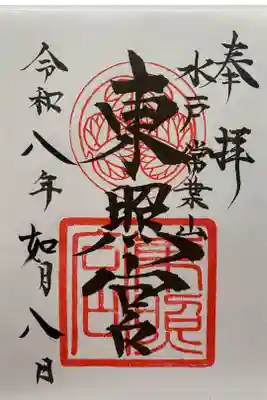 奉拝
水戸常葉山
東照宮
令和八年如月八日